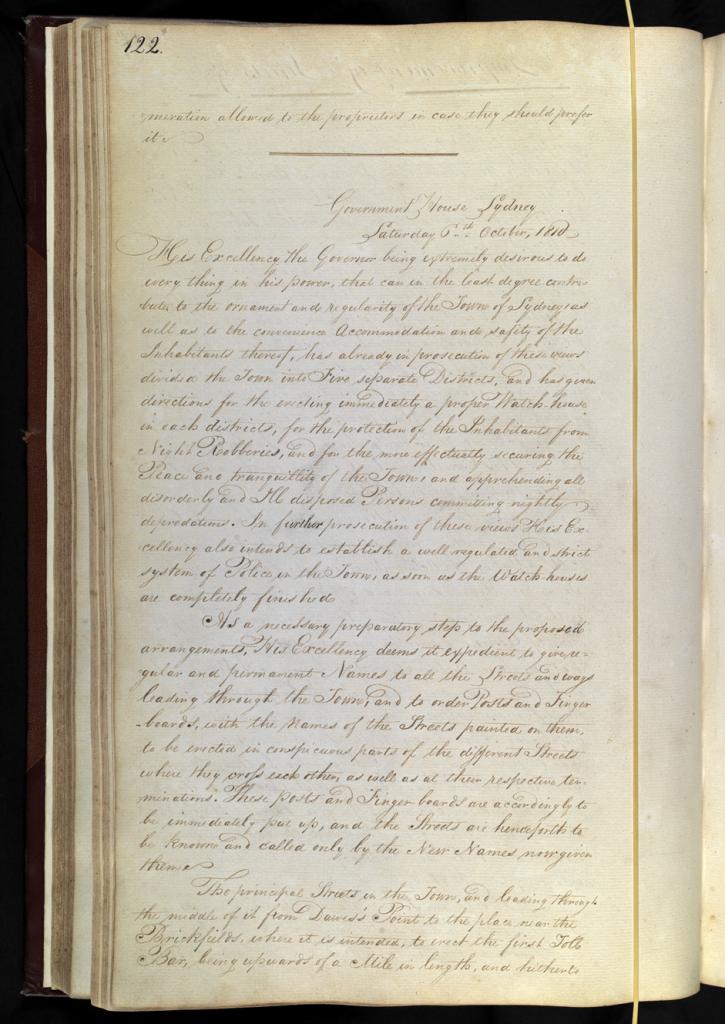 122.
muneration allowed to the proprietors in case they should prefer
it.
Government House Sydney
Saturday 6th October, 1810
His Excellency the Governor being extremely desirous to do
every thing in his power, that can in the least degree contri-
bute to the ornament and regularity of the Town of Sydney, as
well as to the convenience Accommodation and safety of the
Inhabitants thereof, has already in prosecution of these views
divided the Town into Five separate Districts, and has given
directions for the erecting immediately a proper Watch-house
in each districts, for the protection of the Inhabitants from
Night Robberies, and for the more effectually securing the
Peace and tranquillity of the Town, and apprehending all
disorderly and Ill disposed Persons committing nightly
depredations. In further prosecution of these views His Ex-
cellency also intends to establish a well regulated and strict
system of Police in the Town, as soon as the Watch-houses
are completely finished
As a necessary preparatory step to the proposed
arrangements, His Excellency deems it expedient to give re-
gular and permanent Names to all the Streets and ways
leading through the Town, and to order Posts and Finger
-boards, with the Names of the Streets painted on them,
to be erected in conspicuous parts of the different Streets
where they cross each other, as well as at their respective ter-
minations. These posts and Finger boards are accordingly to
be immediately put up, and the Streets are henceforth to
be known and called only by the New Names now given
them
The principal Streets in the Town, and leading through
the middle of it from Dawes's Point to the place near the
Brickfields, where it is intended, to erect the first Toll
Bar, being upwards of a Mile in length, and hitherto